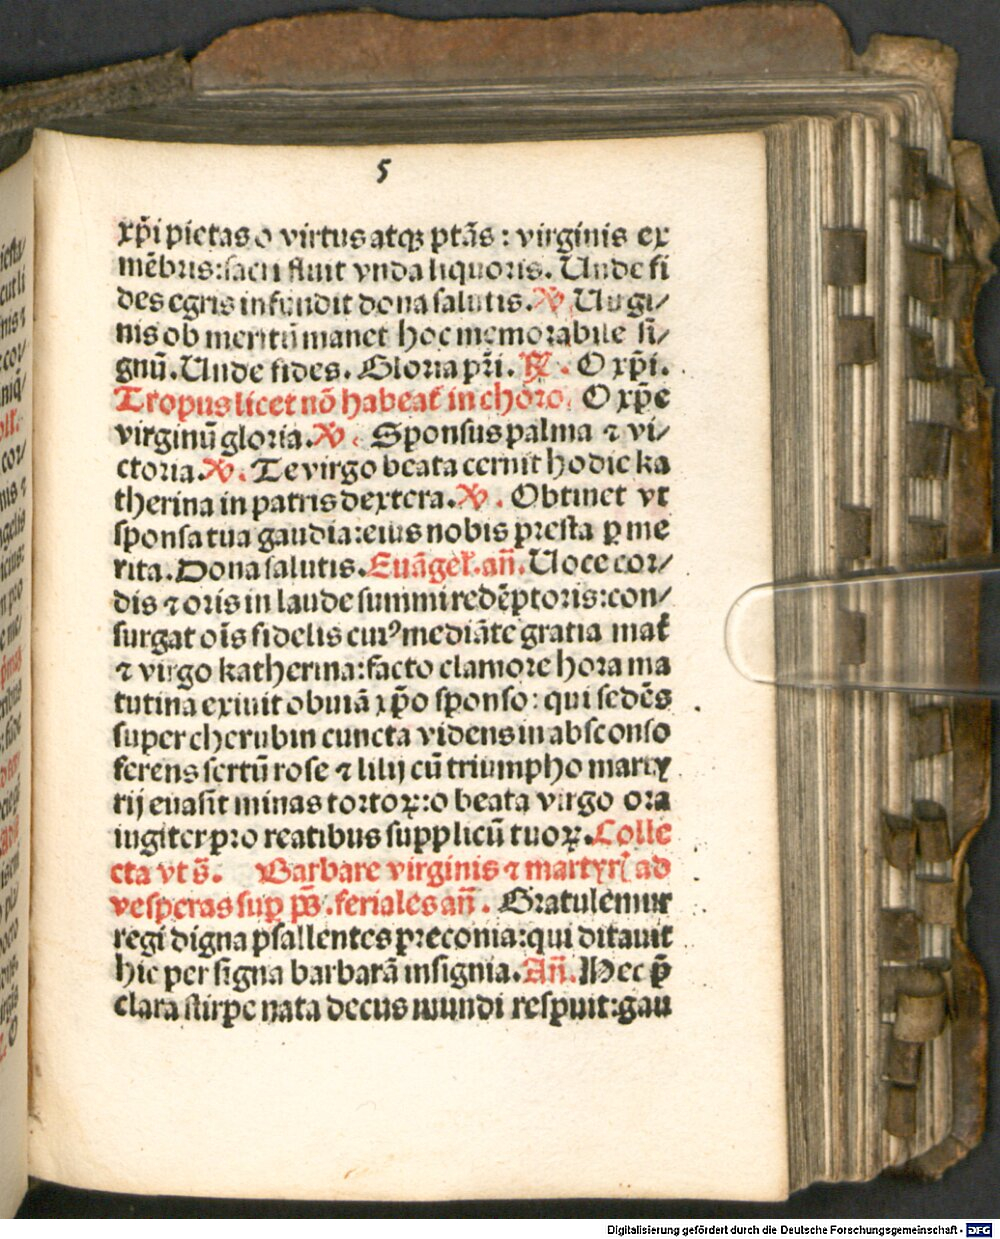 5
xp̄i pietas o virtus atqꝫ ptās : virginis ex
mēbris:sacri fluit vnda liquoris. Unde fi
des egris infundit dona salutis. ℣. Uirgi⸗
nis ob meritū manet hoc memorabile si⸗
gnū. Unde fides. Gloria pr̄i. ℟. O xp̄i.
Tropus licet nō habeat̄ in choro. O xp̄e
virginū gloria. ℣. Sponsus palma ⁊ vi⸗
ctoria. ℣. Te virgo beata cernit hodie ka
therina in patris dextera. ℣. Obtinet vt
sponsa tua gaudia:eius nobis presta ꝑ me
rita. Dona salutis. Euāgel̄. an̄. Uoce cor⸗
dis ⁊ oris in laude summi redēptoris:con⸗
surgat oīs fidelis cui⁹ mediāte gratia mat̄
⁊ virgo katherina:facto clamore hora ma
tutina exiuit obuiā xp̄o sponso : qui sedēs
super cherubin cuncta videns in absconso
ferens sertū rose ⁊ lilij cū triumpho marty
rij euasit minas tortoꝝ:o beata virgo ora
iugiter pro reatibus supplicū tuoꝝ. Colle
cta vt s̄. Barbare virginis ⁊ martyr̄ ad
vesperas sup̄ p̄s. feriales an̄. Gratulemur
regi digna psallentes preconia:qui ditauit
hic per signa barbarā insignia. An̄. Hec p̄
clara stirpe nata decus mundi respuit:gau
Digitalisierung gefördert durch die Deutsche Forschungsgemeinschaft - DFG